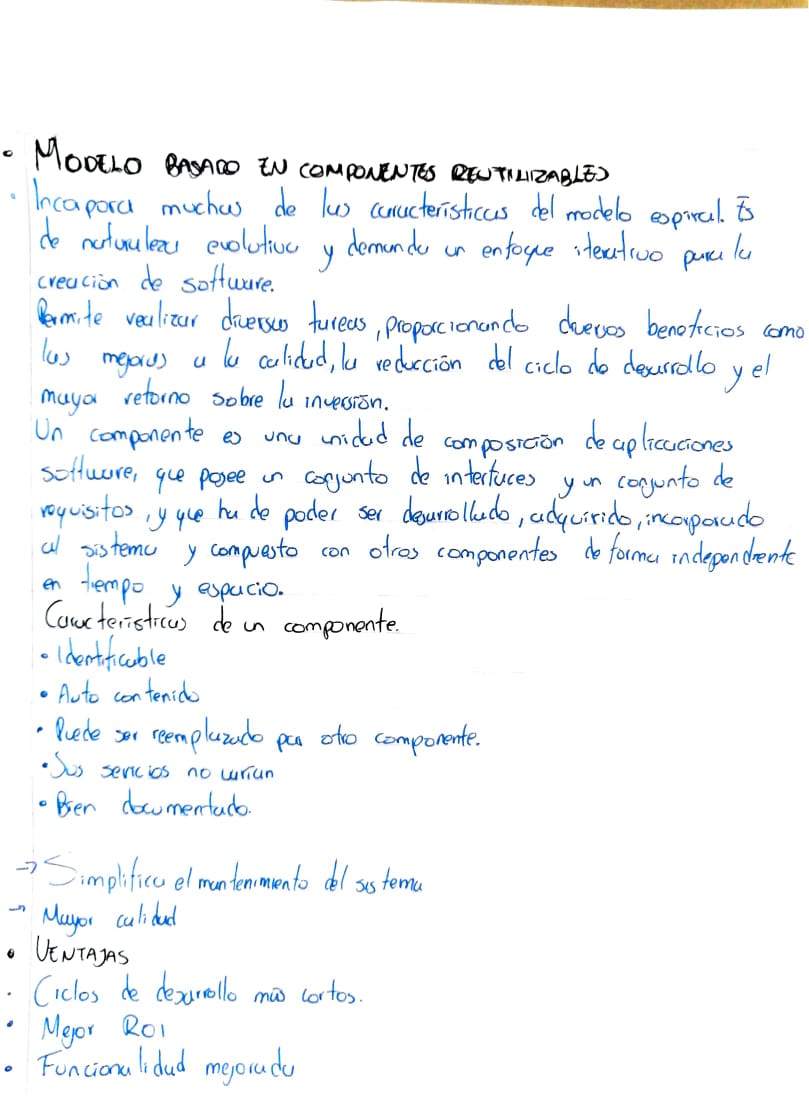 • MODELO BASADO EN COMPONENTES REUTILIZABLES
• Incorpora muchas de las características del modelo espiral. Es
de naturaleza evolutiva y demanda un enfoque iterativo para la
creación de software.
Permite realizar diversas tareas, proporcionando diversos beneficios como
las mejoras a la calidad, la reducción del ciclo de desarrollo y el
mayor retorno sobre la inversión.
Un componente es una unidad de composición de aplicaciones
software, que posee un conjunto de interfaces y un conjunto de
requisitos, y que ha de poder ser desarrollado, adquirido, incorporado
al sistema y compuesto con otros componentes de forma independiente
en tiempo y espacio.
Características de un componente.
• Identificable
• Auto contenido
• Puede ser reemplazado por otro componente.
• Sus servicios no varían
• Bien documentado.
→ Simplifica el mantenimiento del sistema
→ Mayor calidad
• VENTAJAS
• Ciclos de desarrollo más cortos.
• Mejor ROI
• Funcionalidad mejorada